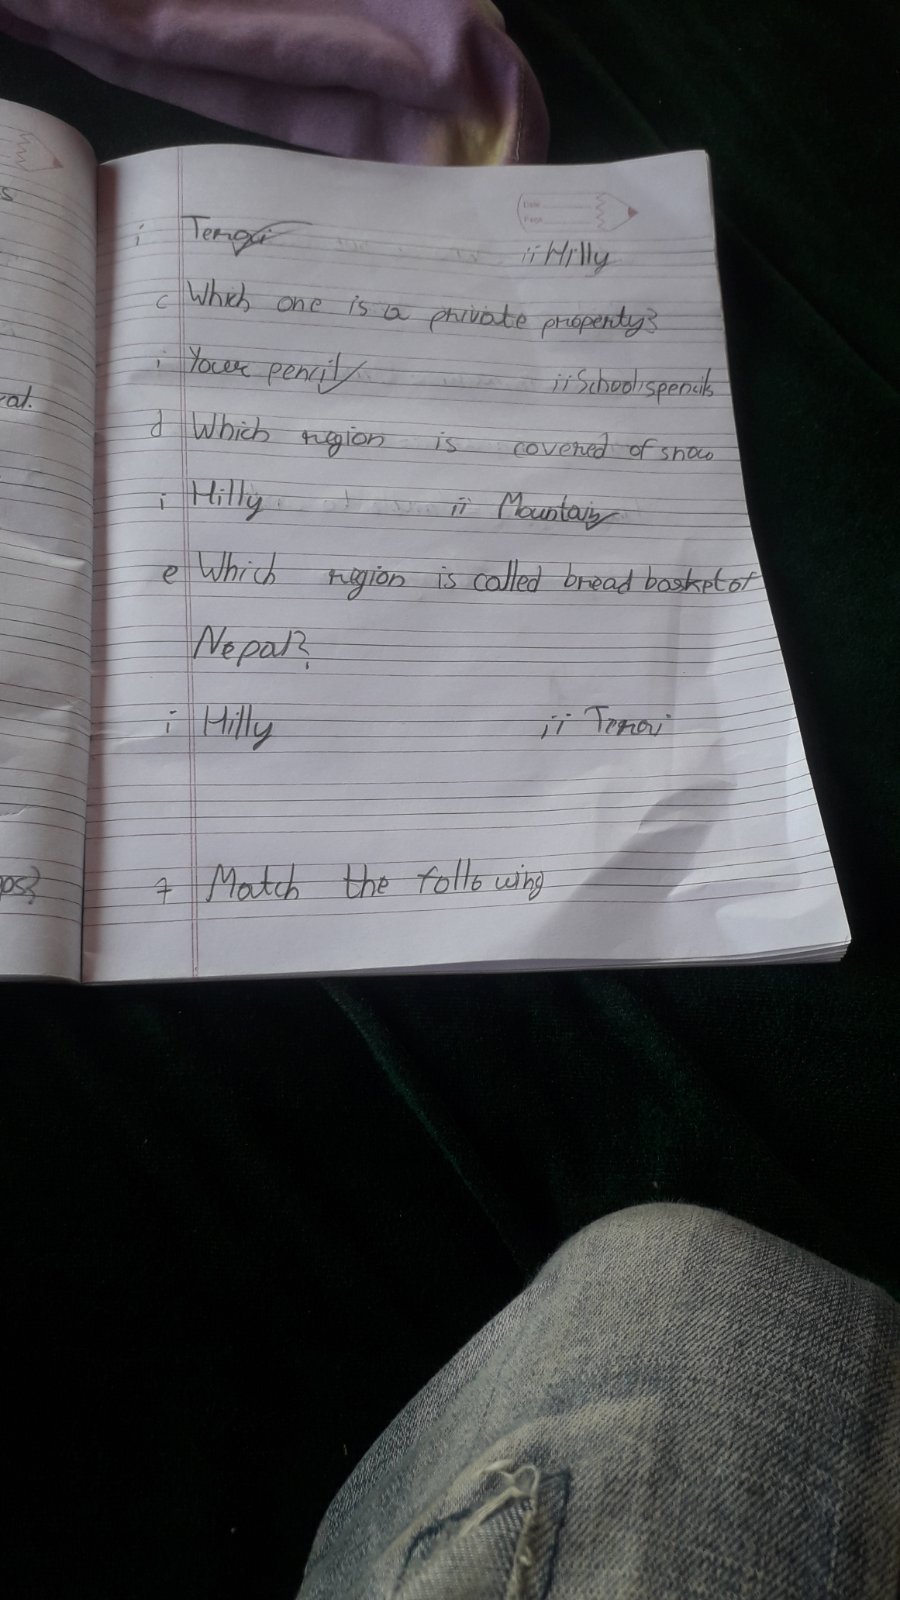 s
Date
Page
i Terai ii Hilly
c Which one is a private property?
i Your pencil ii School's pencils
ral.
d Which region is covered of snow
i Hilly ii Mountain
e Which region is called bread basket of
Nepal?
i Hilly ii Terai
ps?
7 Match the following